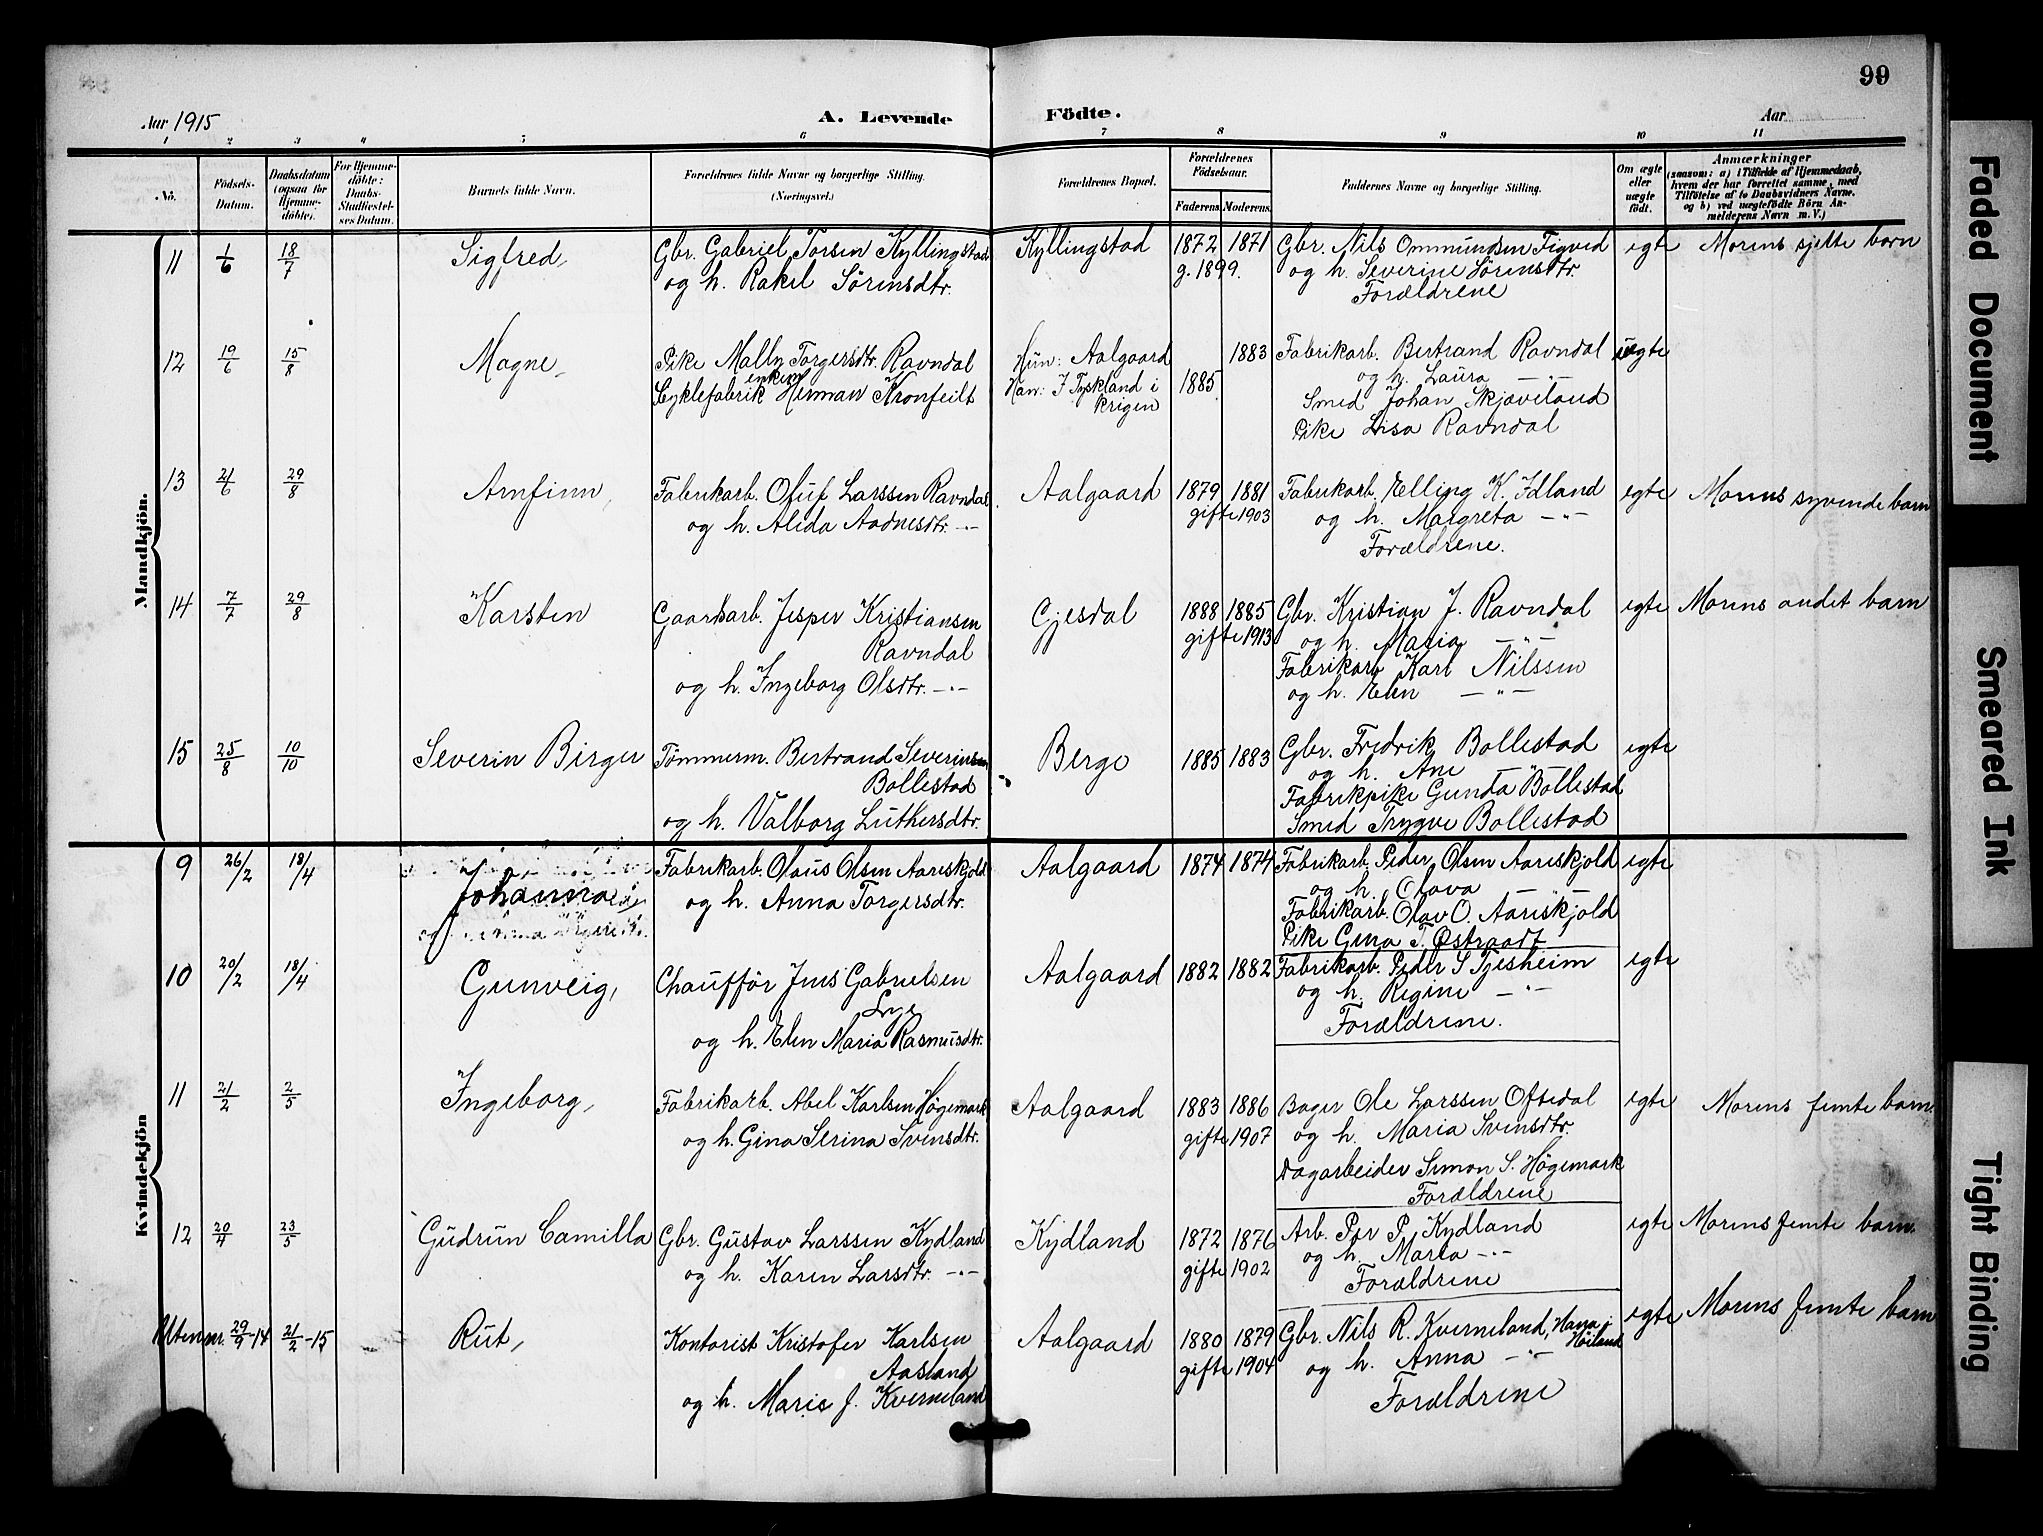 99
Aar 1915 A. Levende Födte. Aar
1 2 3 4 5 6 7 8 9 10 11
No. Födsels-Datum. Daabsdatum (ogsaa for Hjemmedöbte). For Hjemmedöbte: Daabs-Stadfæstelses Datum. Barnets fulde Navn. Forældrenes fulde Navne og borgerlige Stilling. (Næringsvei.) Forældrenes Bopæl. Forældrenes Födselsaar. Faderens. Moderens. Faddernes Navne og borgerlige Stilling. Om ægte eller uægte födt. Anmærkninger (saasom: a) i Tilfælde af Hjemmedaab, hvem der har forrettet samme, med Tilföielse af to Daabsvidners Navne. og b) ved uægtefödte Börn Anmelderens Navn m. V.)
Mandkjön.
11 1/6 18/7 Sigfred, Gbr. Gabriel Torsen Kyllingstad Kyllingstad 1872 1871 Gbr. Nils Ommundsen Figved egte Morens sjette barn
og h. Rakel Sörensdtr. g. 1899. og h. Severine Sörensdtr.
Forældrene
12 19/6 15/8 Magne, Pike Mally Torgersdtr. Ravndal Hun: Aalgaard 1883 Fabrikarb. Bertrand Ravndal uegte
Cyklefabrik Herman Kronfeilt Han: I Tyskland i krigen 1885 og h. Laura —"—
Smed Johan Skjæveland
Pike Lisa Ravndal
13 21/6 29/8 Arnfinn, Fabrikarb. Oluf Larssen Ravndal Aalgaard 1879 1881 Fabrikarb. Elling K. Idland egte Morens syvende barn
og h. Alida Aadnesdtr. —"— gifte 1903 og h. Margreta —"—
Forældrene.
14 7/7 29/8 Karsten Gaardarb. Jesper Kristiansen Gjesdal 1888 1885 Gbr. Kristian J. Ravndal egte Morens andet barn
Ravndal gifte 1913 og h. Maria —"—
og h. Ingeborg Olsdtr. —"— Fabrikarb Karl Nilssen
og h. Elen —"—
15 25/8 10/10 Severin Birger Tömmerm. Bertrand Severinsen Berge 1885 1883 Gbr. Fredrik Bollestad egte
Bollestad og h. Ane —"—
og h. Valborg Luthersdtr. Fabrikpike Gunda Bollestad
Smed Trygve Bollestad
Kvindekjön
9 26/2 18/4 Johanna Fabrikarb. Olaus Olsen Aareskjold Aalgaard 1874 1874 Fabrikarb. Peder Olsen Aareskjold egte
og h. Anna Torgersdtr. og h. Olava —"—
Fabrikarb. Olav O. Aareskjold
Pike Gina T. Østraadt
10 20/2 18/4 Gunveig, Chaufför Jens Gabrielsen Aalgaard 1882 1882 Fabrikarb. Peder S Tjesheim egte
Lye og h. Regine —"—
og h. Elen Maria Rasmusdtr. Forældrene.
11 21/2 2/5 Ingeborg, Fabrikarb. Abel Karlsen Högemark Aalgaard 1883 1886 Bager Ole Larssen Oftedal egte Morens femte barn
og h. Gina Serina Svensdtr. gifte 1907 og h. Maria Svensdtr.
Dagarbeider Simon S. Högemark
Forældrene
12 20/4 23/5 Gudrun Camilla Gbr. Gustav Larssen Kydland Kydland 1872 1876 Arb. Per P. Kydland egte Morens femte barn.
og h. Karen Larsdtr. —"— gifte 1902 og h. Marta —"—
Forældrene
Uten nr. 29/9-14 21/2-15 Rut, Kontorist Kristofer Karlsen Aalgaard 1880 1879 Gbr. Nils R. Kverneland, Hana i Höiland egte Morens femte barn
Aasland gifte 1904 og h. Anna —"—
og h. Marie J. Kverneland Forældrene
Faded Document
Smeared Ink
Tight Binding